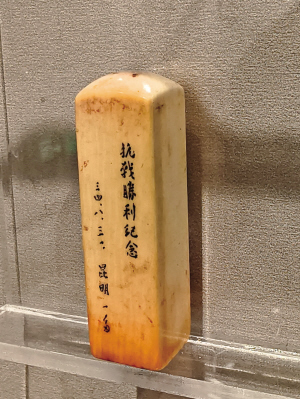 抗戰勝利紀念
三四.八. 昆明 一多